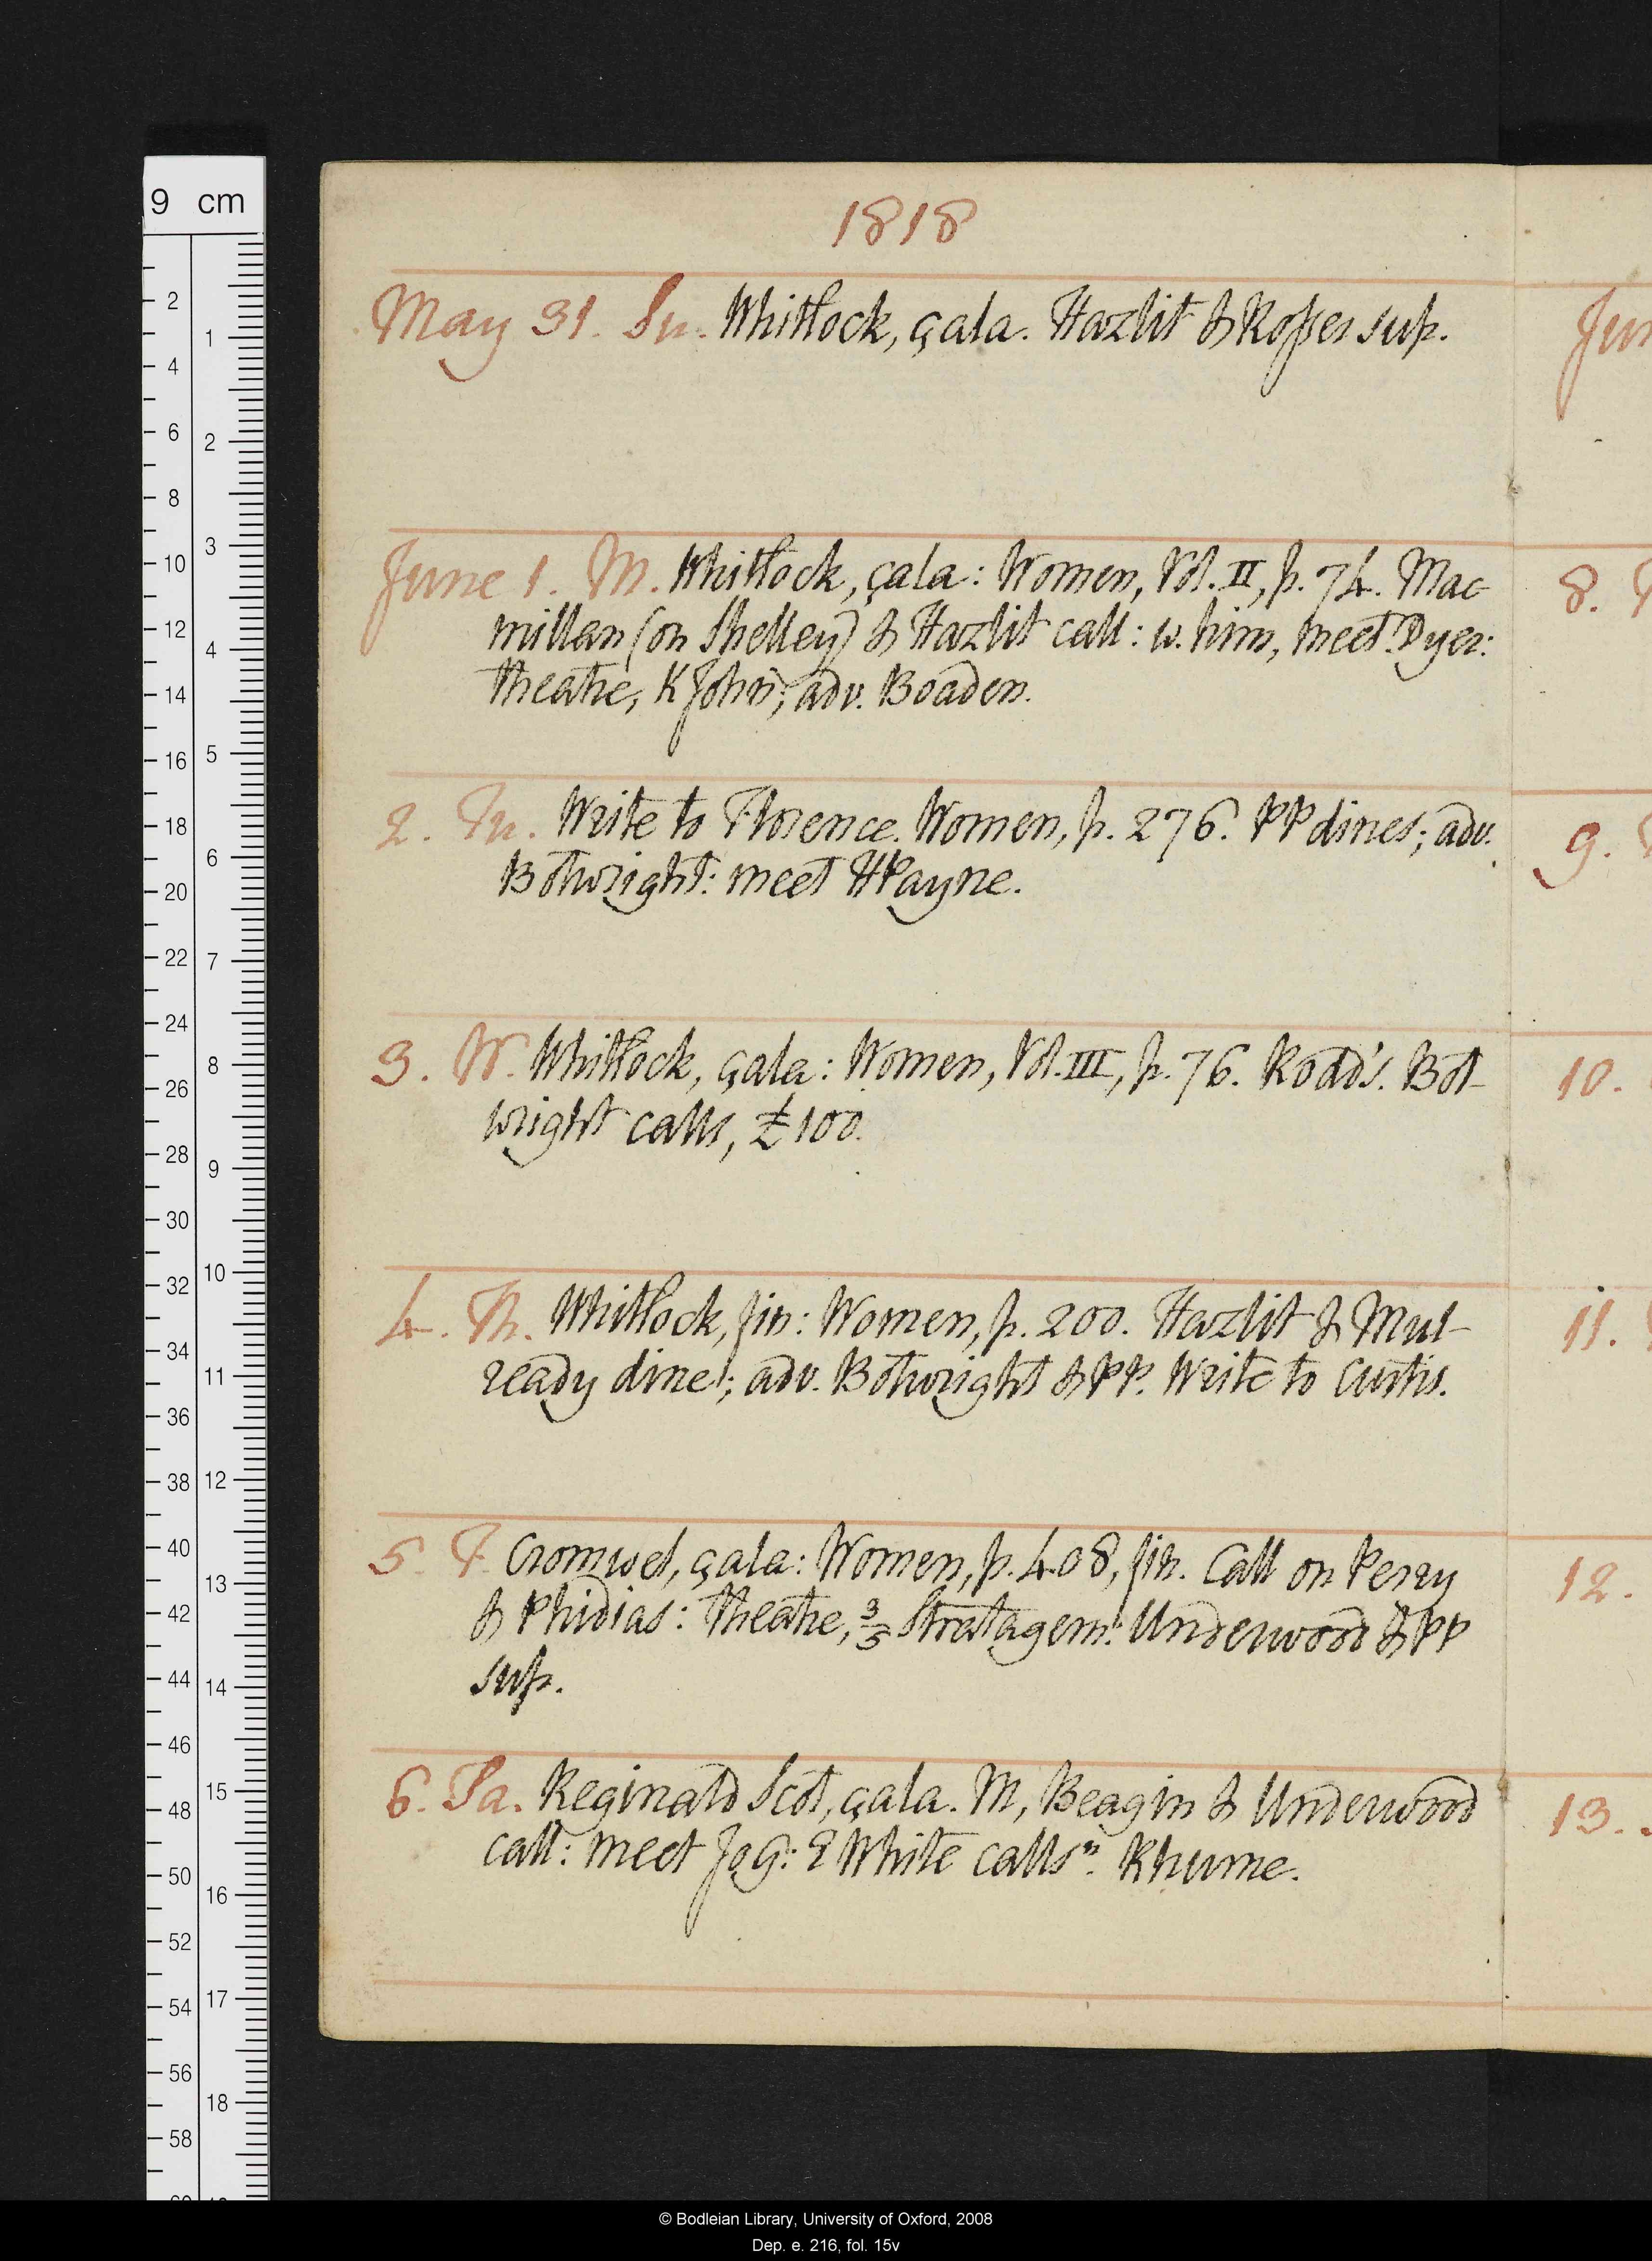 1818
May 31. Su. Whitlock, çala. Hazlit & Rosser sup.
June 1. M. Whitlock, çala: Women, Vol. II, p. 74. Mac-
millan (on Shelley) & Hazlit call: w. him, meet Dyer:
theatre, K John; adv. Boaden.
2. Tu. Write to Florence. Women, p. 276. PP dines; adv.
Botwright: meet HPayne.
3. W. Whitlock, çala: Women, Vol. III, p. 76. Rodd's. Bot-
wright calls, £100.
4. Th. Whitlock, fin: Women, p. 200. Hazlit & Mul-
ready dine; adv. Botwright & PP. Write to Curtis.
5. F. Cromwel, çala: Women, p. 408, fin. Call on Perry
& Phidias: theatre, 3/5 Stratagem: Underwood & PP
sup.
6. Sa. Reginald Scot, çala. M, Beagin & Underwood
call: meet JoG: E White calls n. Rhume.
Jun
8.
9.
10.
11.
12.
13.
9 cm
2
4
6
8
10
12
14
16
18
20
22
24
26
28
30
32
34
36
38
40
42
44
46
48
50
52
54
56
58
1
2
3
4
5
6
7
8
9
10
11
12
13
14
15
16
17
18
© Bodleian Library, University of Oxford, 2008
Dep. e. 216, fol. 15v